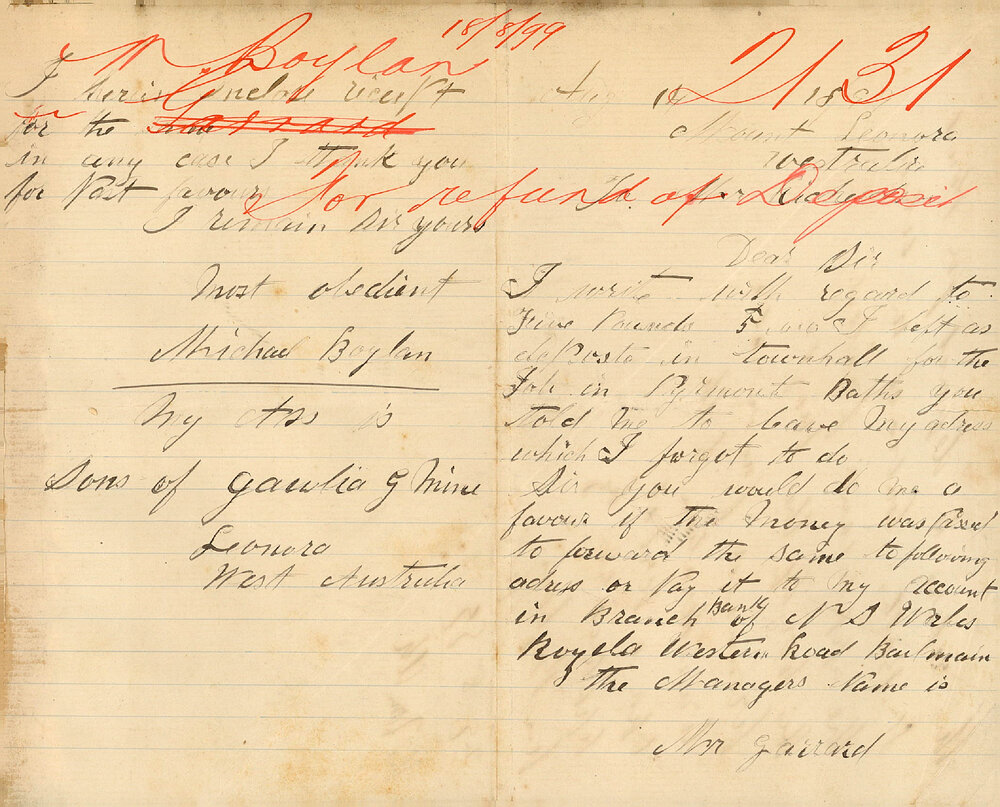 2131
18/8/99
M Boylan
Garrard
for refund of Deposit
Aug 18
Mount Leonora
Westralia
Dear Sir
I write with regard to
Five Pounds £5 I left as
deposit in townhall for the
Job in Pyrmont Baths you
told me to leave my adress
which I forgot to do
Sir you would do me a
favour if the money was
to forward the same to following
adress or Pay it to my account
in Branch Bank of N S Wales
Western Road Balmain
the Managers Name is
Mr Garrard
I herin inclose reciept
for the same
in any case I thank you
for Past favours
I remain Sir yours
most obedient
Michael Boylan
My is
Sons of gawlia g Mine
Leonora
West Australia